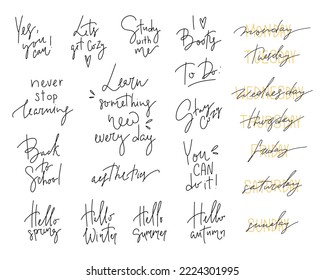 Yes,
you
can!
Let's
get Cozy
Study
with
me
I ♥
Booty
To Do:
never
stop
learning
Learn
something
new
every day
Stay
Cozy
Back
to
School
aesthetics
You
CAN
do it!
Hello
spring
Hello
Winter
Hello
summer
Hello
autumn
monday
Tuesday
Wednesday
Thursday
friday
saturday
sunday
shutterstock.com · 2224301995